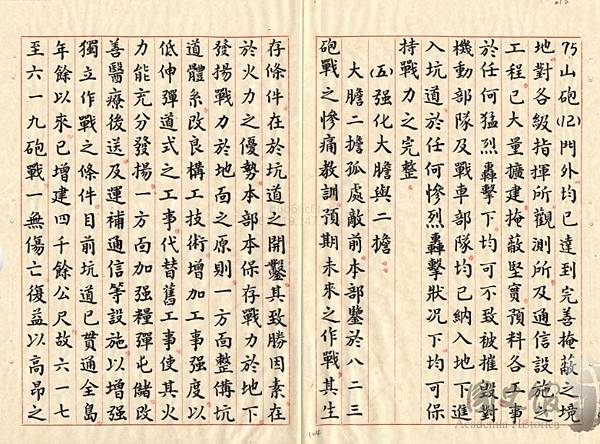 75山砲(12)門外均已達到完善掩蔽之境
地對各級指揮所觀測所及通信設施之
工程已大量擴建掩蔽堅實預料各工事
於任何猛烈轟擊下均可不致被摧毀對
機動部隊及戰車部隊均已納入地下進
入坑道於任何慘烈轟擊狀況下均可保
持戰力之完整
(五)強化大膽與二擔
大膽二擔孤處敵前本部鑒於八二三
砲戰之慘痛教訓預期未來之作戰其生
存條件在於坑道之開鑿其致勝因素在
於火力之優勢本部本保存戰力於地下
發揚戰力於地面之原則一方面整備坑
道體系改良構工技術增加工事強度以
低伸彈道式之工事代替舊工事使其火
力能充分發揚一方面加强糧彈屯儲改
善醫療後送及運補通信等設施以增强
獨立作戰之條件目前坑道已貫通全島
年餘以來已增建四千餘公尺故六一七
至六一九砲戰一無傷亡復益以高昂之
國史館
Academia Historica